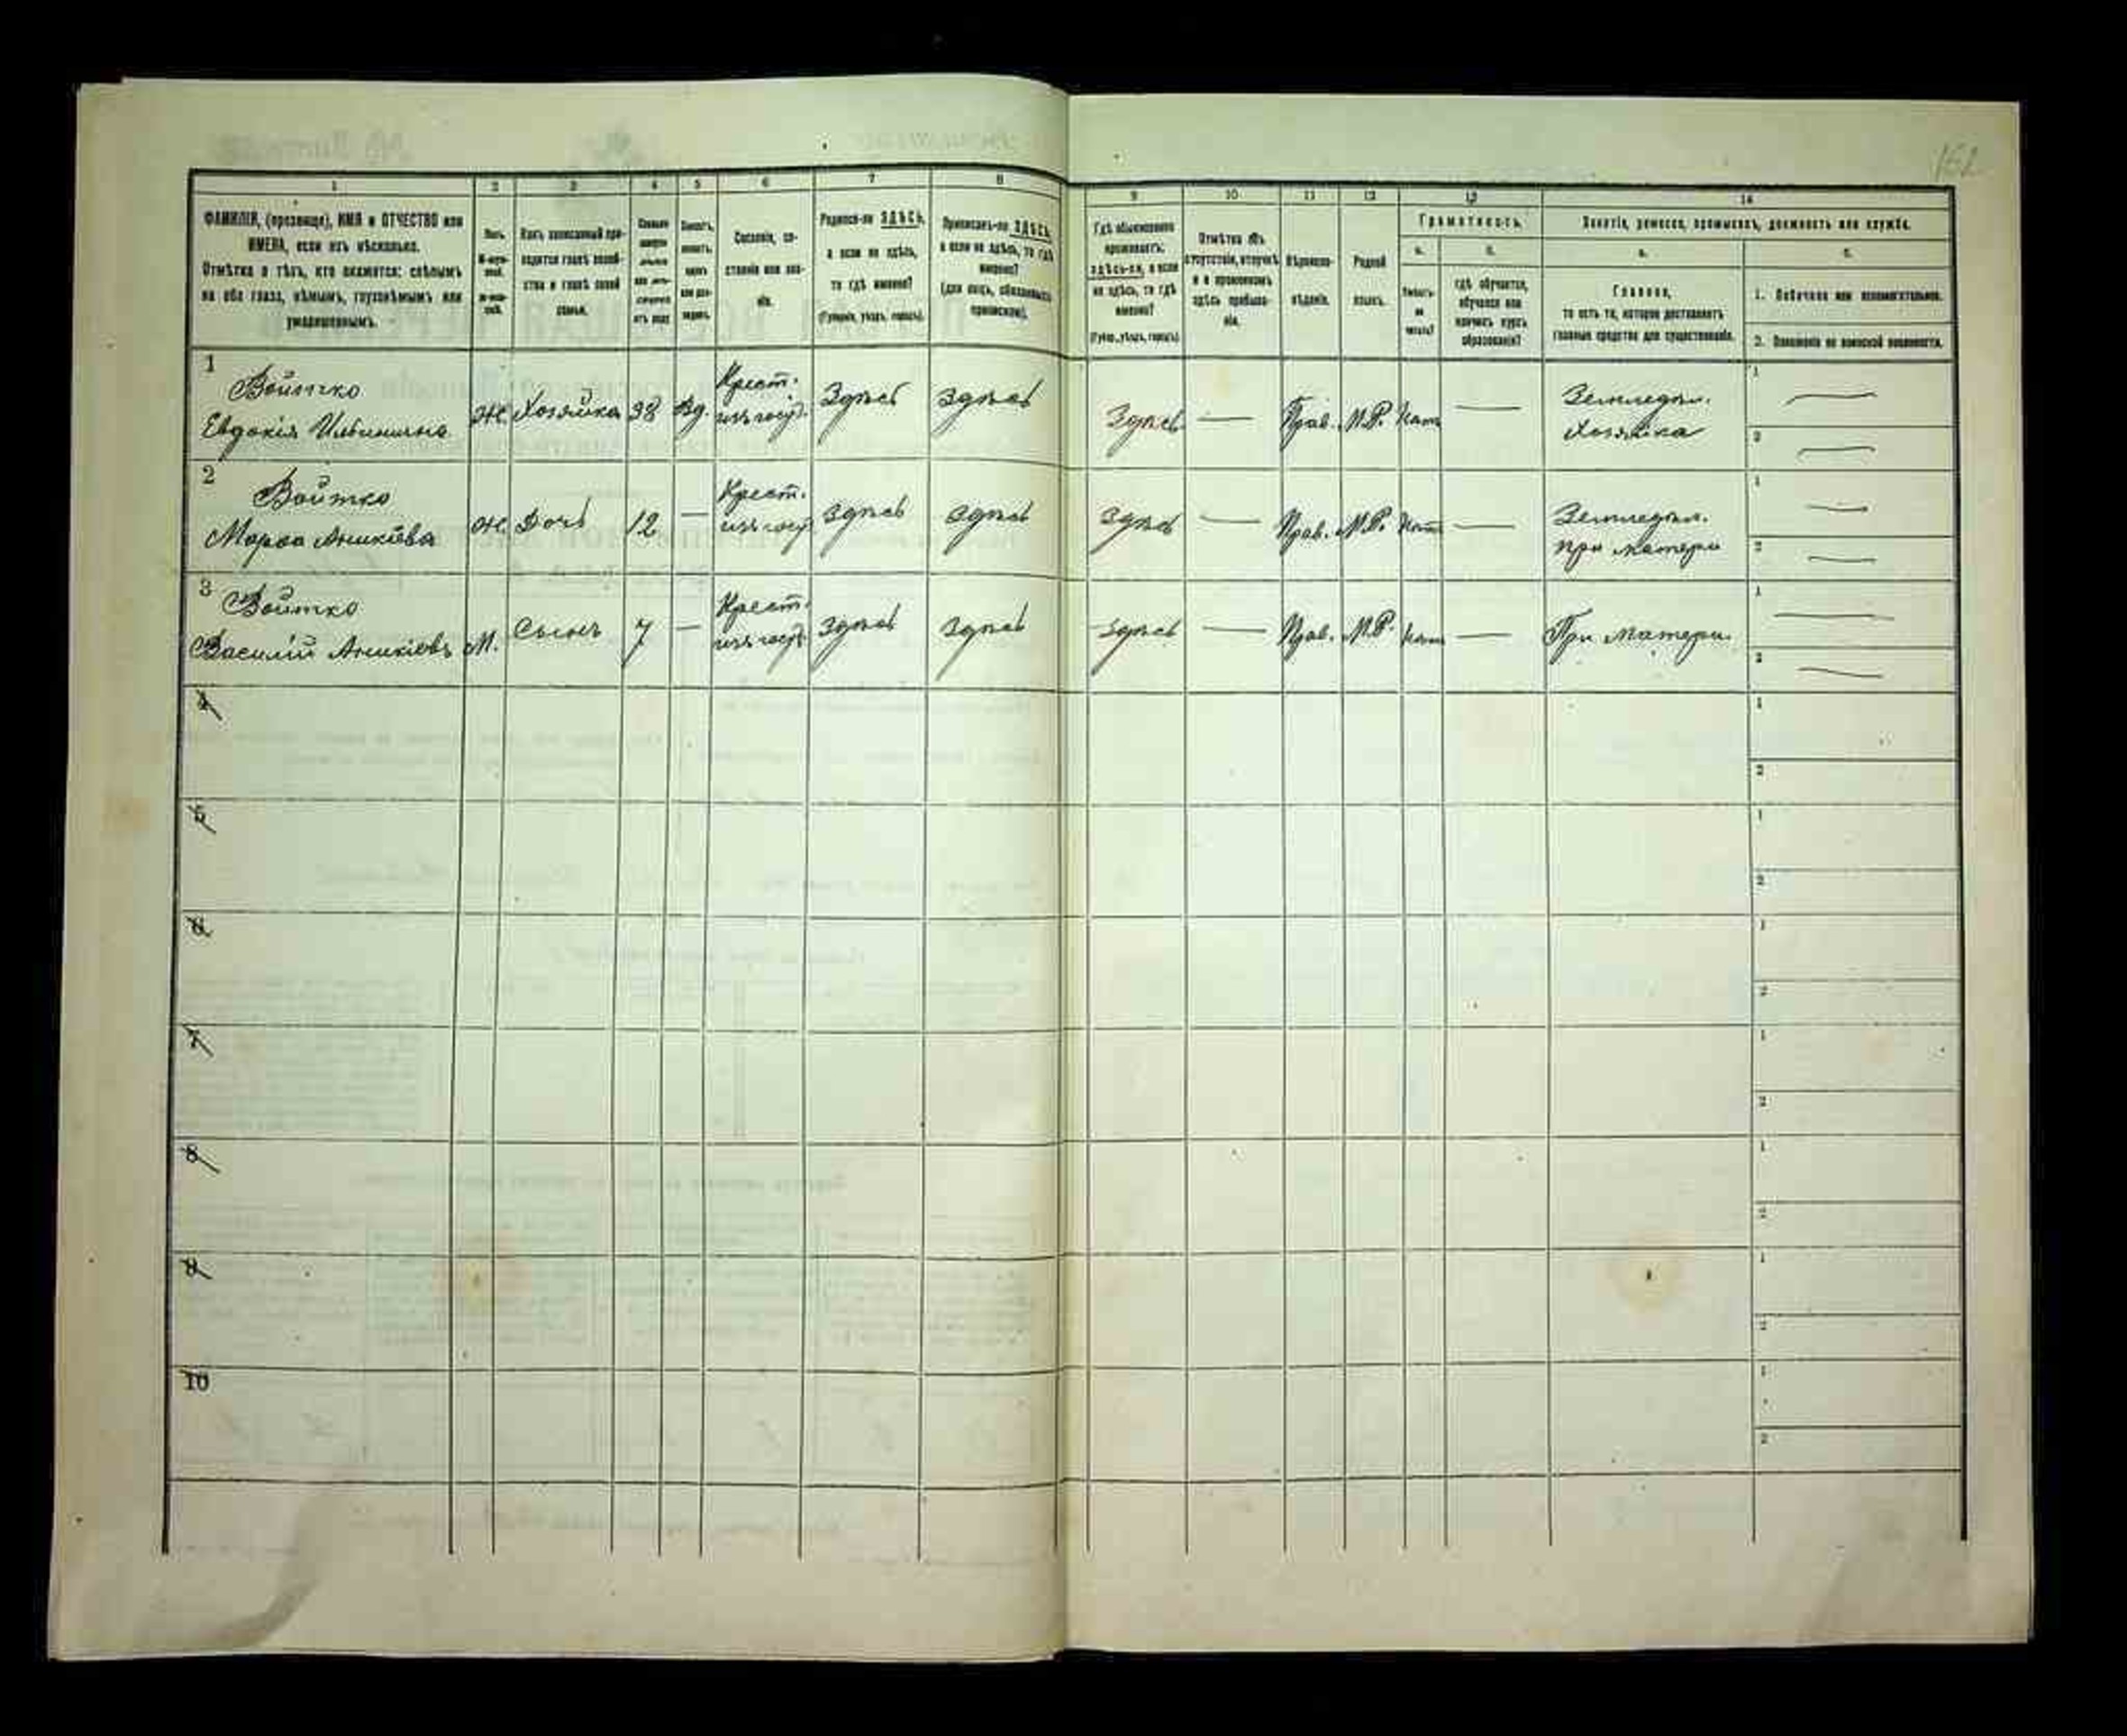 162
1 2 3 4 5 6 7 8 9 10 11 12 13 14
ФАМИЛІЯ, (прозвище), ИМЯ и ОТЧЕСТВО или
ИМЕНА, если ихъ нѣсколько.
Отмѣтка о тѣхъ, кто окажется: слѣпымъ
на оба глаза, нѣмымъ, глухонѣмымъ или
умалишеннымъ.
Полъ.
Какъ записанный при-
ходится главѣ хозяй-
ства и главѣ своей
семьи.
Сословіе, со-
стояніе или зва-
ніе.
Родился-ли ЗДѢСЬ,
а если не здѣсь,
то гдѣ именно?
(Губернія, уѣздъ, городъ).
Приписанъ-ли ЗДѢСЬ,
а если не здѣсь, то гдѣ
именно?
(для лицъ, обязанныхъ
припиской).
Гдѣ обыкновенно
проживаетъ:
здѣсь-ли, а если
не здѣсь, то гдѣ
именно?
(Губер., уѣздъ, городъ)
Отмѣтка объ
отсутствіи, отлучкѣ
и о временномъ
здѣсь пребыва-
ніи.
Вѣроиспо-
вѣданіе.
Родной
языкъ.
Грамотность.
а.
Умѣетъ-
ли
читать?
б.
гдѣ обучается,
обучался или
кончилъ курсъ
образованія?
Занятіе, ремесло, промыселъ, должность или служба.
а.
Главное,
то есть то, которое доставляетъ
главныя средства для существованія.
б.
1. Побочное или вспомогательное.
2. Положеніе по воинской повинности.
1 Войтко
Евдокія Ильинична Ж. Хозяйка 38 Вд. Крест. изъ госуд. Здѣсь Здѣсь Здѣсь — Прав. М.Р. Нѣтъ — Земледѣл. Хозяйка 1 — 2 —
2 Войтко
Марѳа Аникіева Ж. Дочь 12 — Крест. изъ госуд. Здѣсь Здѣсь Здѣсь — Прав. М.Р. Нѣтъ — Земледѣл. при матери 1 — 2 —
3 Войтко
Василій Аникіевъ М. Сынъ 7 — Крест. изъ госуд. Здѣсь Здѣсь Здѣсь — Прав. М.Р. Нѣтъ — При матери. 1 — 2 —
4 1 2
5 1 2
6 1 2
7 1 2
8 1 2
9 1 2
10 1 2